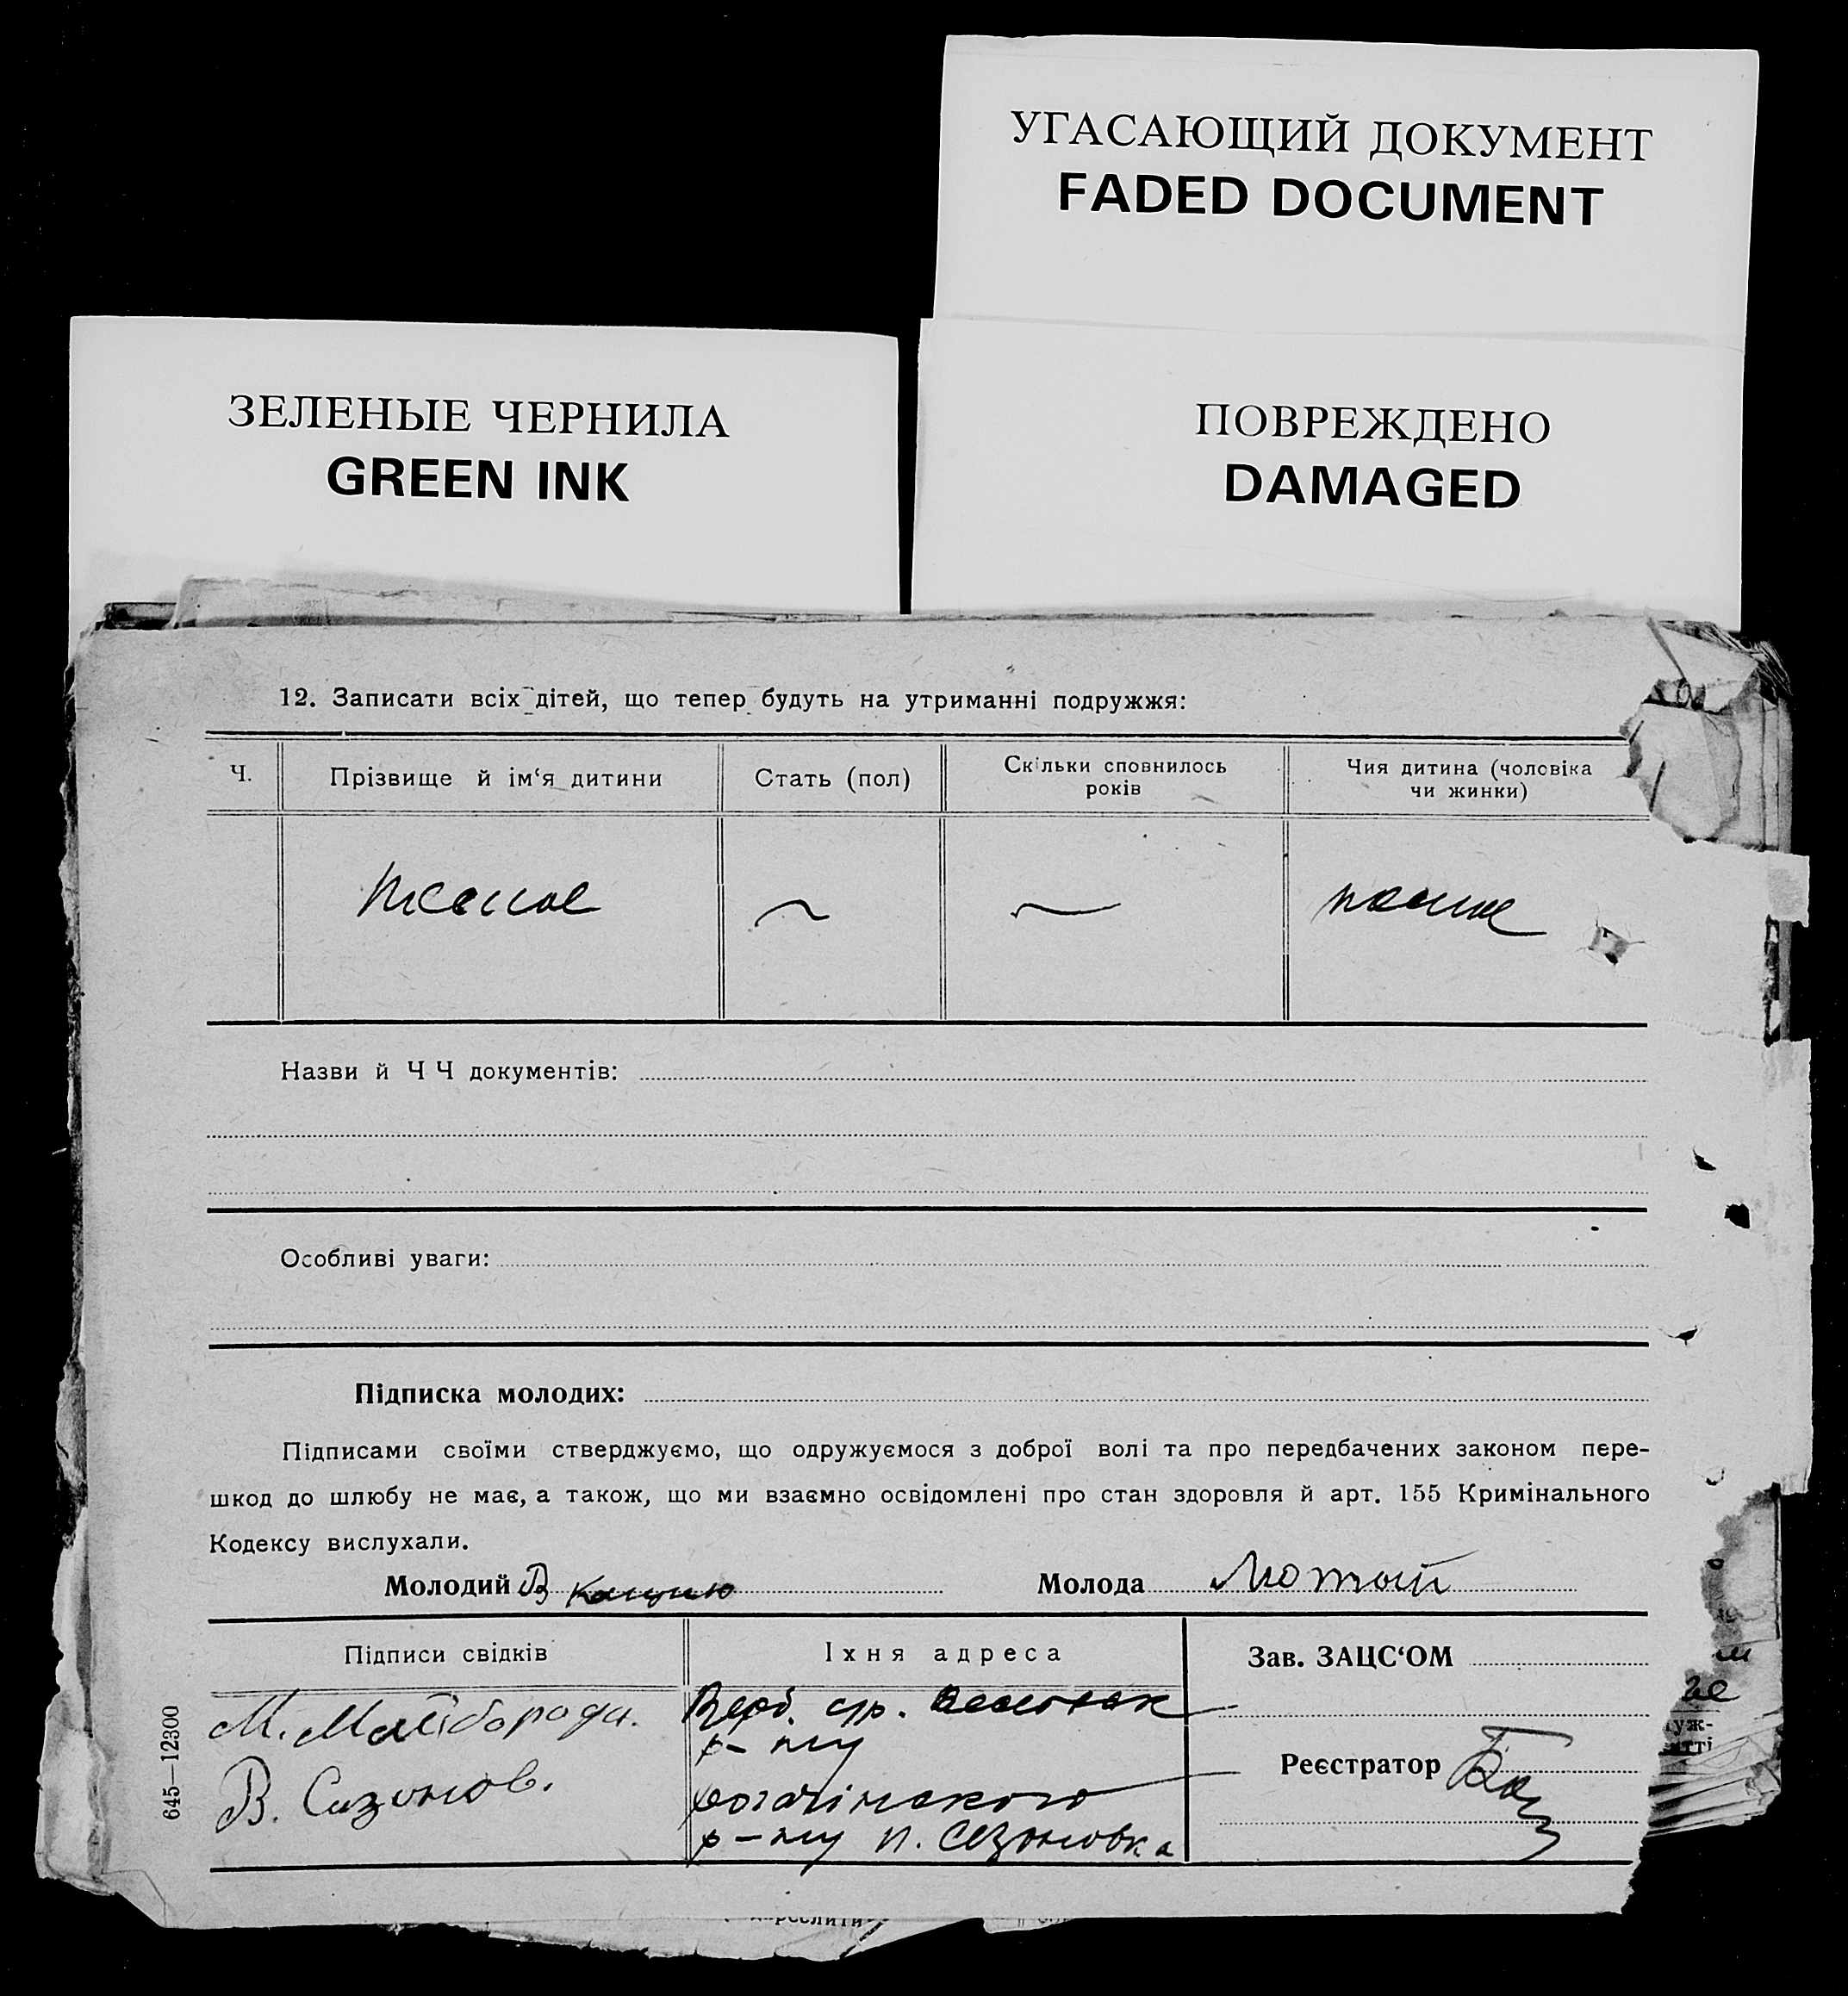 УГАСАЮЩИЙ ДОКУМЕНТ
FADED DOCUMENT
ЗЕЛЕНЫЕ ЧЕРНИЛА
GREEN INK
ПОВРЕЖДЕНО
DAMAGED
12. Записати всіх дітей, що тепер будуть на утриманні подружжя:
Ч.
Прізвище й ім‘я дитини
Стать (пол)
Скільки сповнилось
років
Чия дитина (чоловіка
чи жинки)
Назви й ЧЧ документів:
Особливі уваги:
Підписка молодих:
Підписами своїми стверджуємо, що одружуємося з доброї волі та про передбачених законом пере-
шкод до шлюбу не має, а також, що ми взаємно освідомлені про стан здоровля й арт. 155 Кримінального
Кодексу вислухали.
Молодий В
Молода
Підписи свідків
Іхня адреса
Зав. ЗАЦС‘ОМ
М. Майборода.
р-ну
В. Сазонов.
Реєстратор
р-ну с. Сазоновка
645—12300